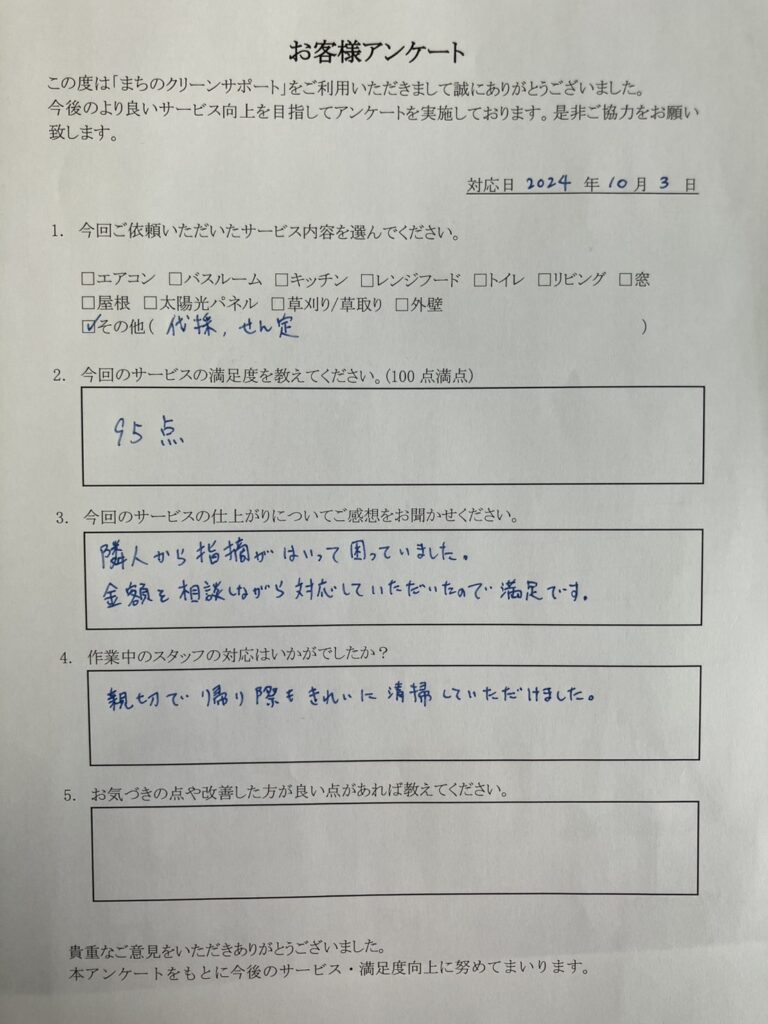 お客様アンケート
この度は「まちのクリーンサポート」をご利用いただきまして誠にありがとうございました。
今後のより良いサービス向上を目指してアンケートを実施しております。是非ご協力をお願い
致します。
対応日 2024 年 10 月 3 日
1. 今回ご依頼いただいたサービス内容を選んでください。
□エアコン □バスルーム □キッチン □レンジフード □トイレ □リビング □窓
□屋根 □太陽光パネル □草刈り/草取り □外壁
☑その他( 伐採, せん定 )
2. 今回のサービスの満足度を教えてください。(100 点満点)
95点
3. 今回のサービスの仕上がりについてご感想をお聞かせください。
隣人から指摘がはいって困っていました。
金額を相談しながら対応していただいたので満足です。
4. 作業中のスタッフの対応はいかがでしたか？
親切で帰り際もきれいに清掃していただけました。
5. お気づきの点や改善した方が良い点があれば教えてください。
貴重なご意見をいただきありがとうございました。
本アンケートをもとに今後のサービス・満足度向上に努めてまいります。